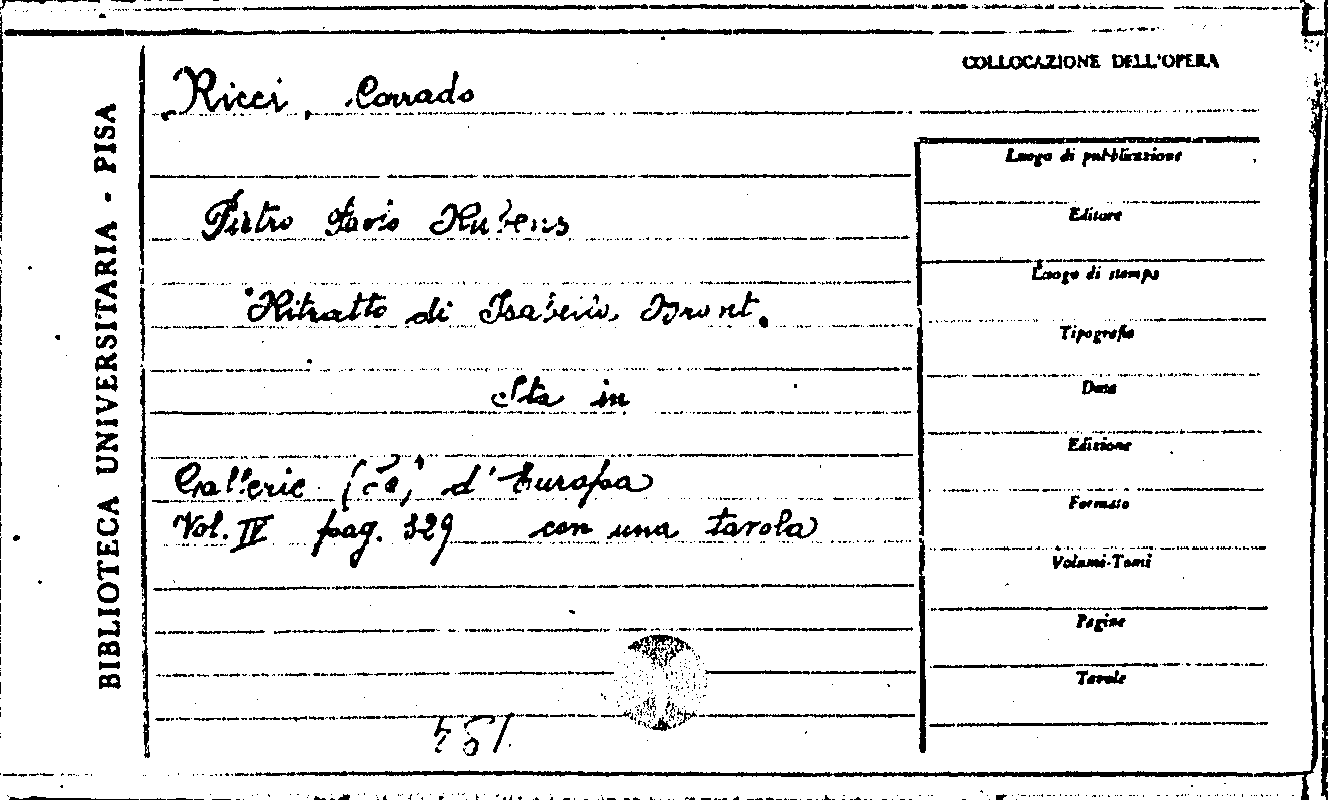 BIBLIOTECA UNIVERSITARIA - PISA
COLLOCAZIONE DELL'OPERA
Ricci, Corrado
Pietro Paolo Rubens
Ritratto di Isabella Brant.
Sta in
Gallerie (Le) d'Europa
Vol. IV pag. 329 con una tavola
Luogo di pubblicazione
Editore
Luogo di stampa
Tipografia
Data
Edizione
Formato
Volumi-Tomi
Pagine
Tavole